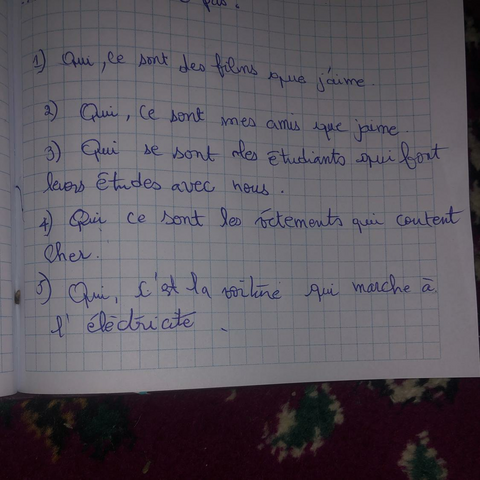 pas.
1) Qui, ce sont des films que j'aime.
2) Qui, ce sont mes amis que jaime.
3) Qui se sont des étudiants qui font
leurs études avec nous.
4) Qui ce sont les vêtements qui coutent
cher.
5) Qui, c'est la voiture qui marche à
l'éléctricité.